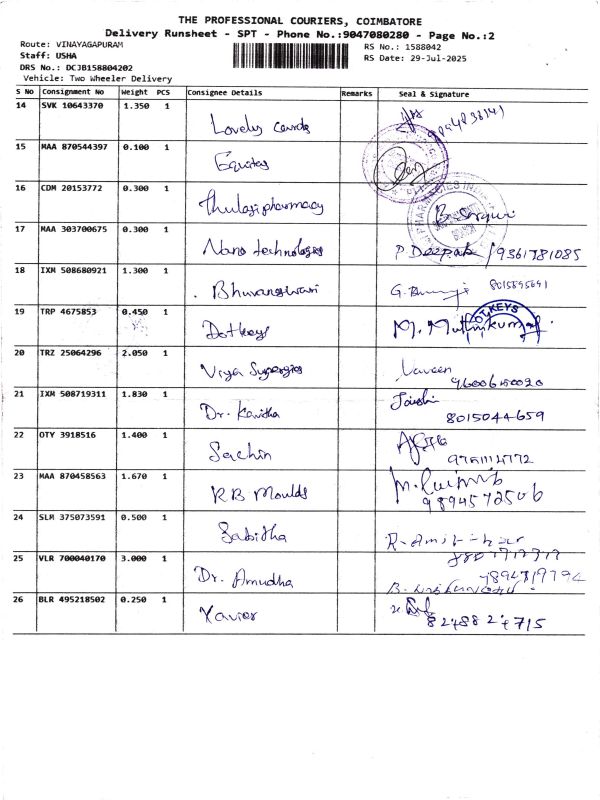 THE PROFESSIONAL COURIERS, COIMBATORE
Delivery Runsheet - SPT - Phone No.:9047080280 - Page No.:2
Route: VINAYAGAPURAM
RS No.: 1588042
Staff: USHA
RS Date: 29-Jul-2025
DRS No.: DCJB158804202
Vehicle: Two Wheeler Delivery
S No Consignment No Weight PCS Consignee Details Remarks Seal & Signature
14 SVK 10643370 1.350 1 Lovely cards
15 MAA 870544397 0.100 1 Equitas
16 CDM 20153772 0.300 1 Thulasi pharmacy
17 MAA 303700675 0.300 1 Nano technologies P Deepak / 9361781085
18 IXM 508680921 1.300 1 Bhuvaneswari 8015895691
19 TRP 4675853 0.450 1 Dotkeys M. Muthukumar
20 TRZ 25064296 2.050 1 Naveen
96006150020
21 IXM 508719311 1.830 1 Dr. Kavitha
8015044659
22 OTY 3918516 1.400 1 Sachin
23 MAA 870458563 1.670 1 RB Moulds
9894572506
24 SLM 375073591 0.500 1 Sabitha
25 VLR 700040170 3.000 1 Dr. Amudha
26 BLR 495218502 0.250 1 Xavier
8248824715